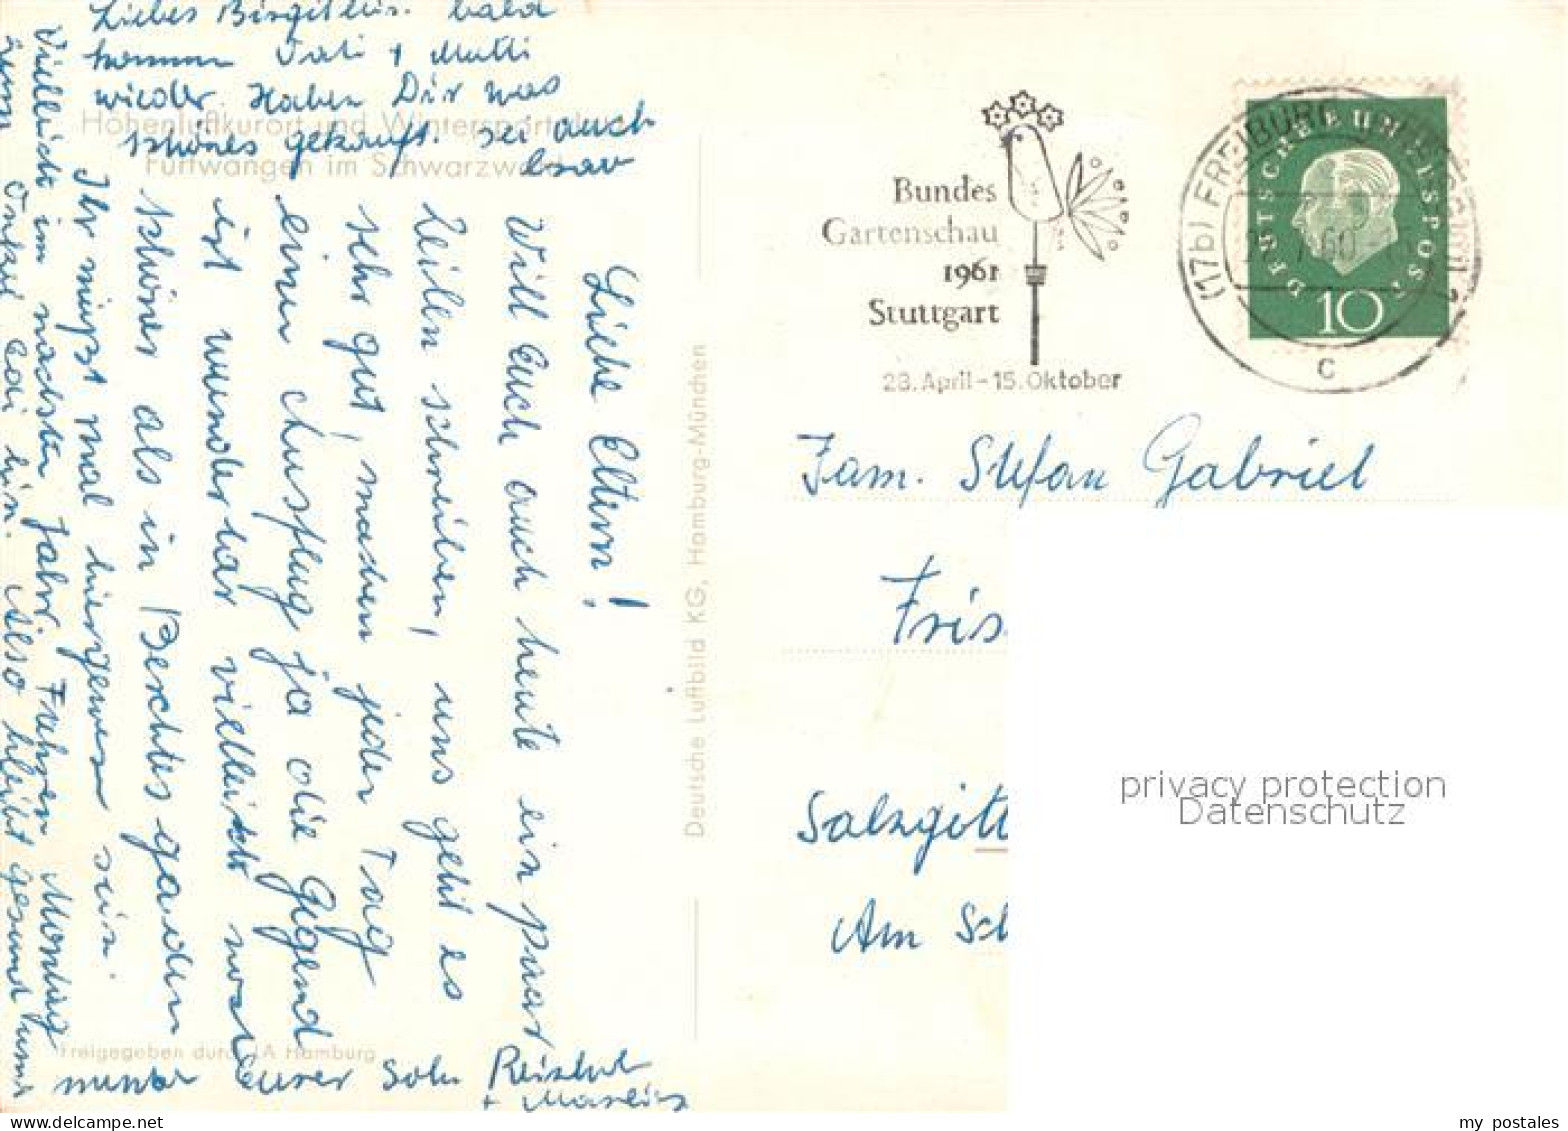 Liebes Birgitlein. bald
kommen Vati + Mutti
wieder. Haben Dir was
schönes gekauft. sei auch
brav
Höhenluftkurort und Wintersport
Furtwangen im Schwarzwald
Liebe Eltern!
Will Euch auch heute ein paar
Zeilen schreiben, uns geht es
sehr gut, machen jeden Tag
einen Ausflug ja die Gegend
ist wunderbar vielleicht noch
schöner als in Berchtesgaden
Ihr müßt mal hiergewesen sein.
Vielleicht im nächsten Jahr. Fahren Montag
zum Onkel bleibt gesund und
munter Eurer Sohn Reinhold
+ Marlies
Freigegeben durch LA Hamburg
Deutsche Luftbild KG, Hamburg-München
Bundes
Gartenschau
1961
Stuttgart
28. April - 15. Oktober
(17b) FREIBURG
60
c
DEUTSCHE BUNDESPOST
10
Fam. Stefan Gabriel
Fris
Salzgitt
Am Sch
privacy protection
Datenschutz
my postales